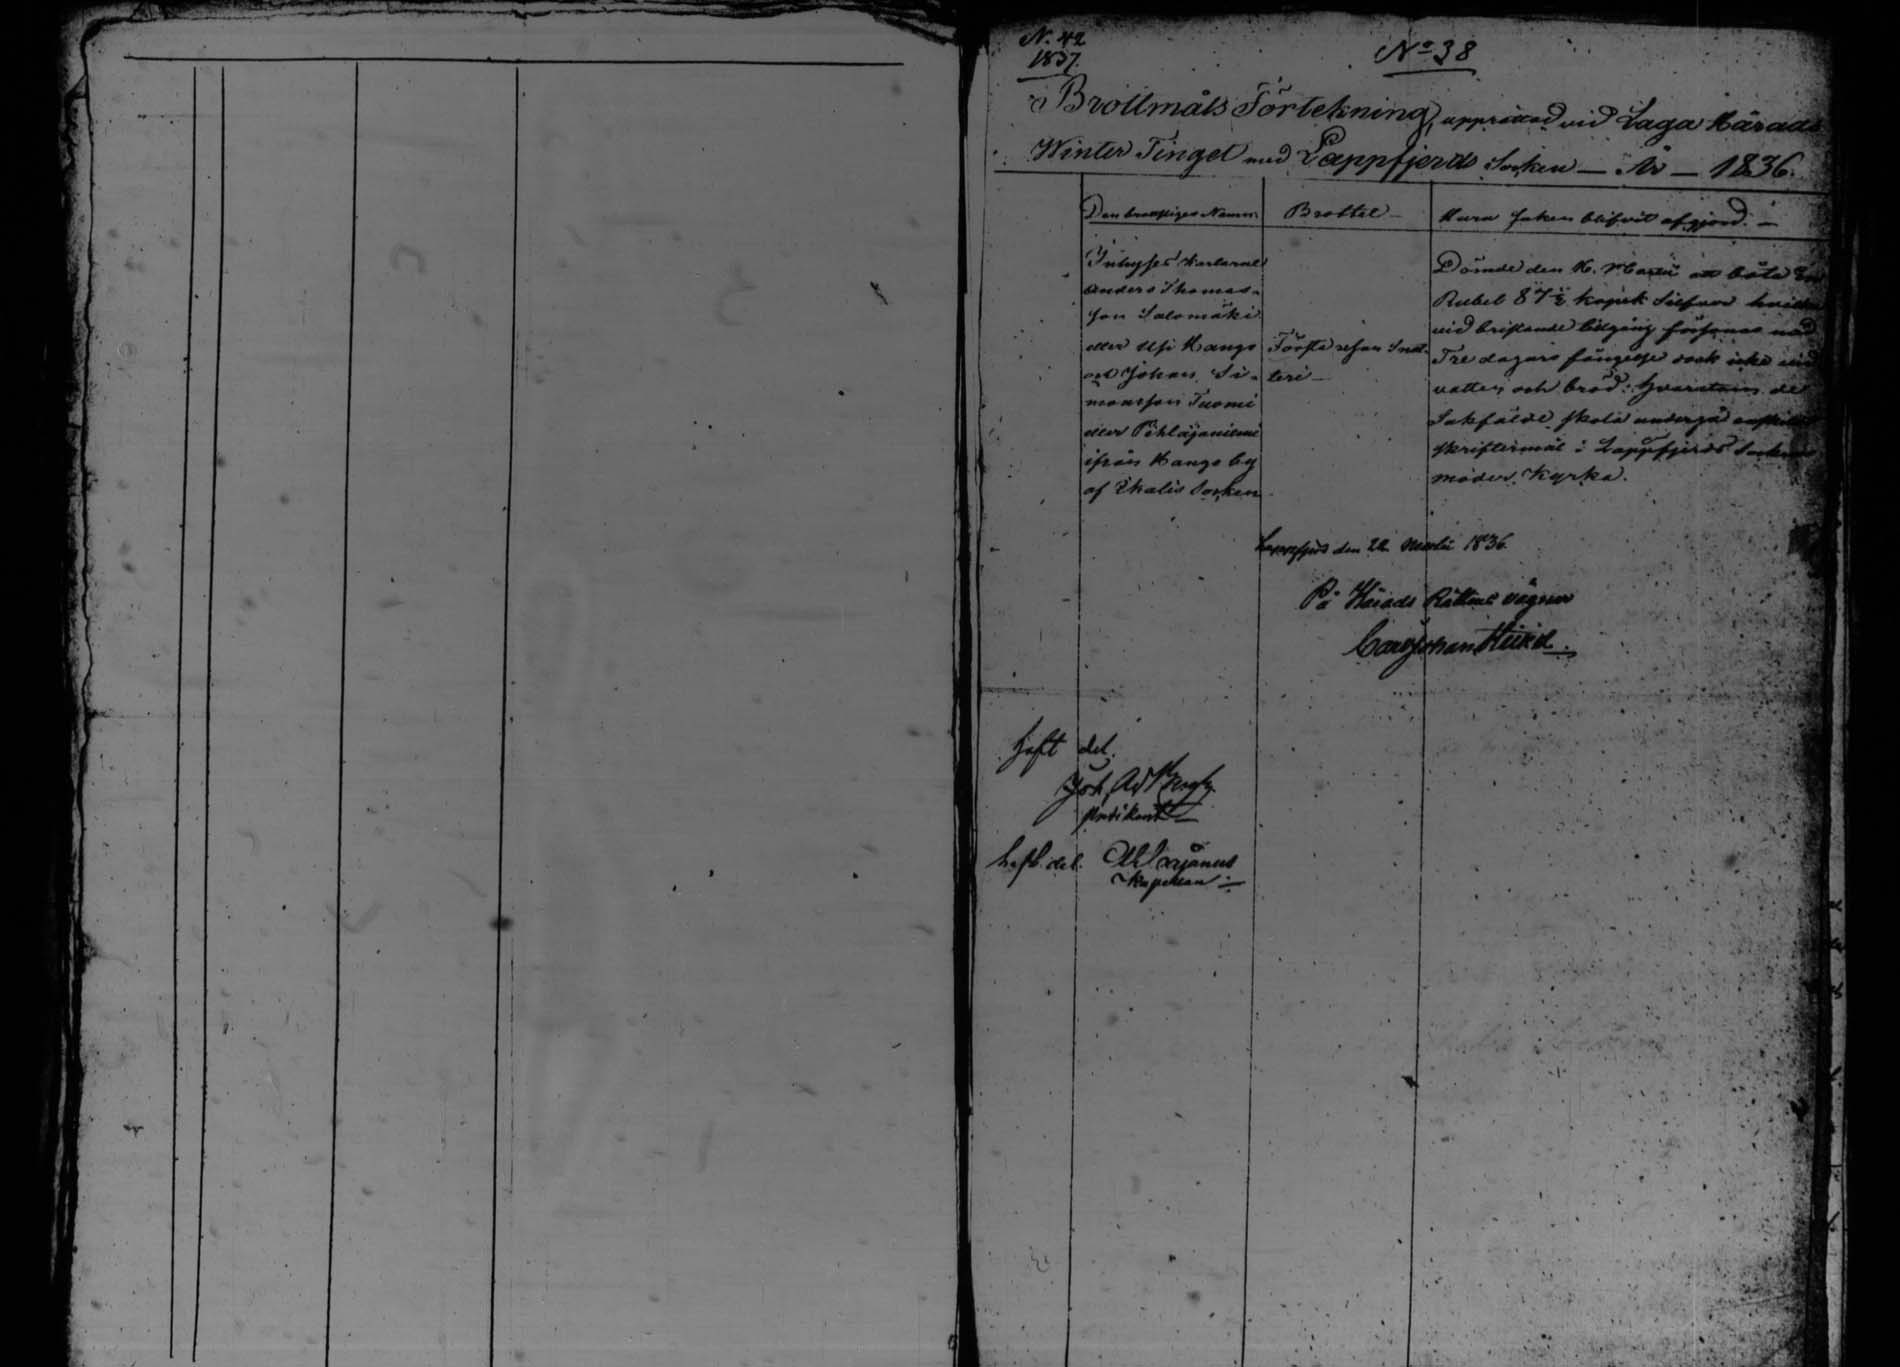 N. 42
1837.
No 38
Brottmåls Förtekning, upprättad vid Laga Härads
Winter Tinget med Lappfjerds Socken — År — 1836.
Den brottsliges Namn. Brottet — Huru saken blifvit afgjord. —
Inhyses Karlarne
Anders Thomas-
son Salomäki
eller Kangs
och Johan Si-
monsson Tuomi
eller Pihlajaniemi
ifrån Kangs by
af Ikalis Socken
Första resan Snat-
teri —
Dömde den att böta
Rubel 87½ kopek Silfver hvilka
vid bristande tillgång försonas med
Tre dagars fängelse dock icke vid
vatten och bröd: hvarutom de
Sakfälde skola undergå enskilt
skriftermål i Lappfjerds Sockens
moder Kyrka.
Lappfjerd den 22 Martii 1836.
På Härads Rättens vägnar
Carl Johan
läst det
Joh. Ad.
Predikant —
läst det.
Kapellan —